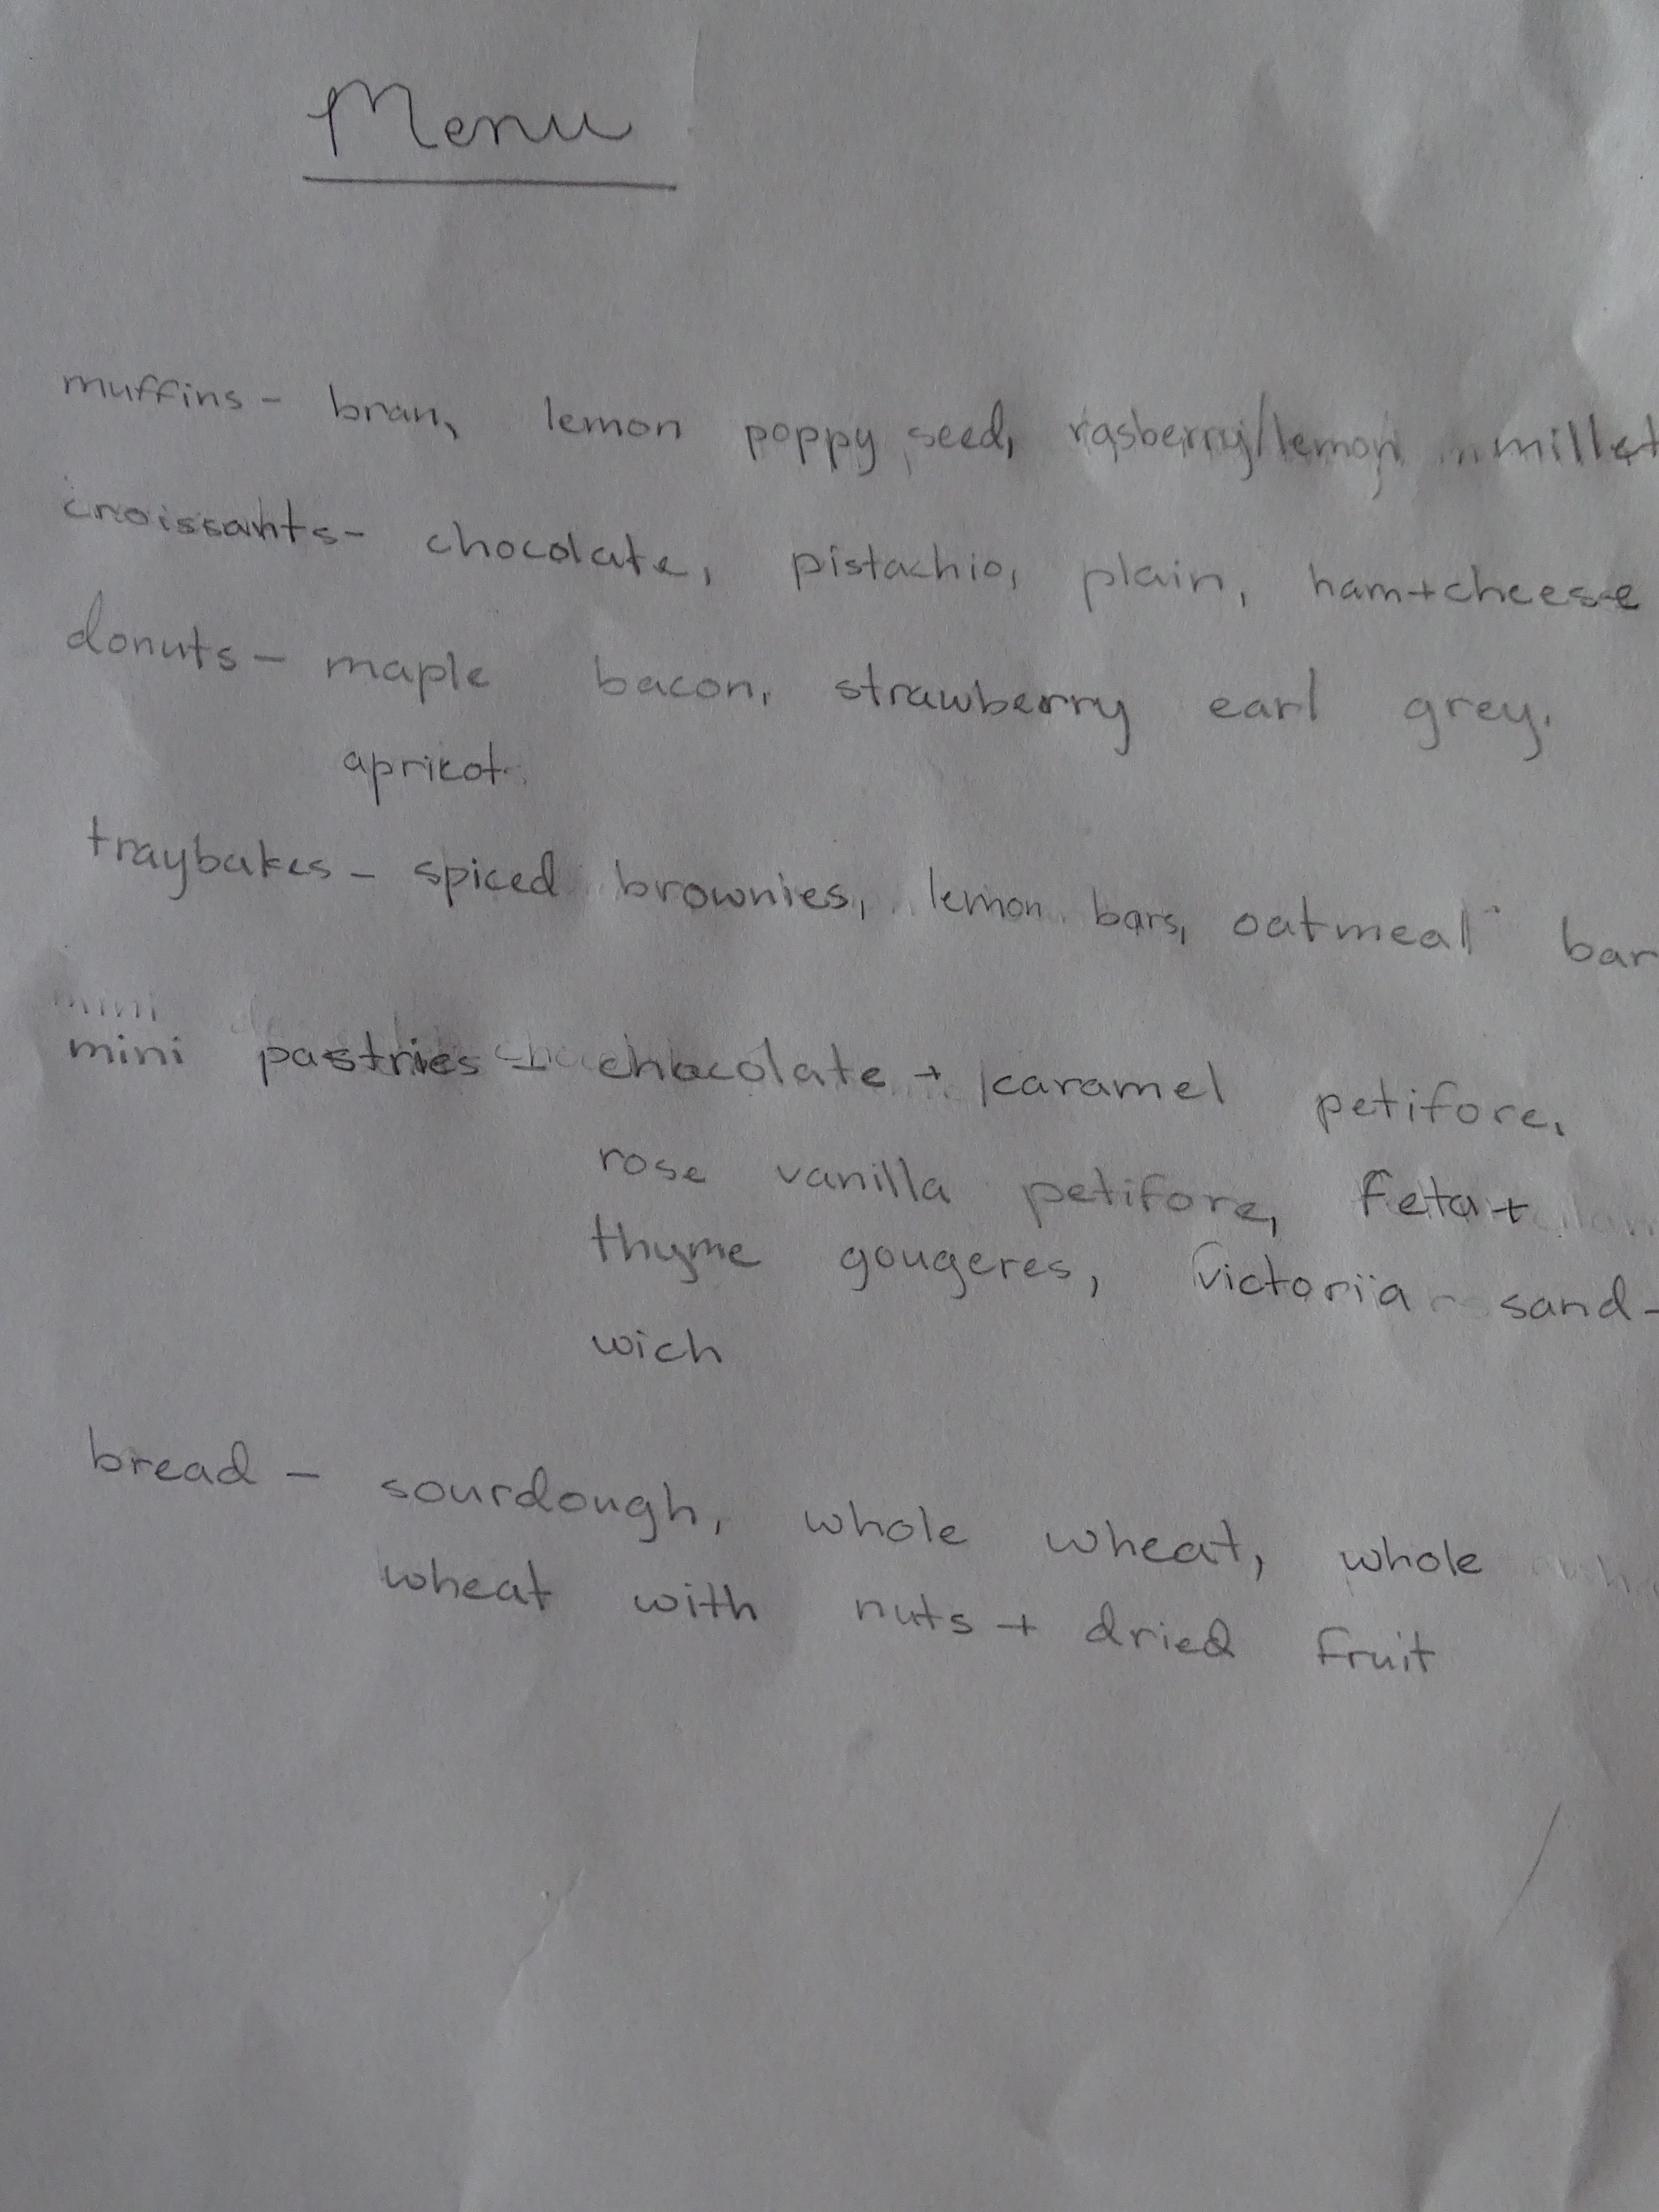 Menu
muffins - bran, lemon poppy seed, rasberry/lemon millet
croissants - chocolate, pistachio, plain, ham+cheese
donuts - maple bacon, strawberry earl grey,
apricot
traybakes - spiced brownies, lemon bars, oatmeal bar
mini
mini pastries - chocolate + caramel petifore,
rose vanilla petifore, feta +
thyme gougeres, victoria sand-
wich
bread - sourdough, whole wheat, whole
wheat with nuts + dried fruit